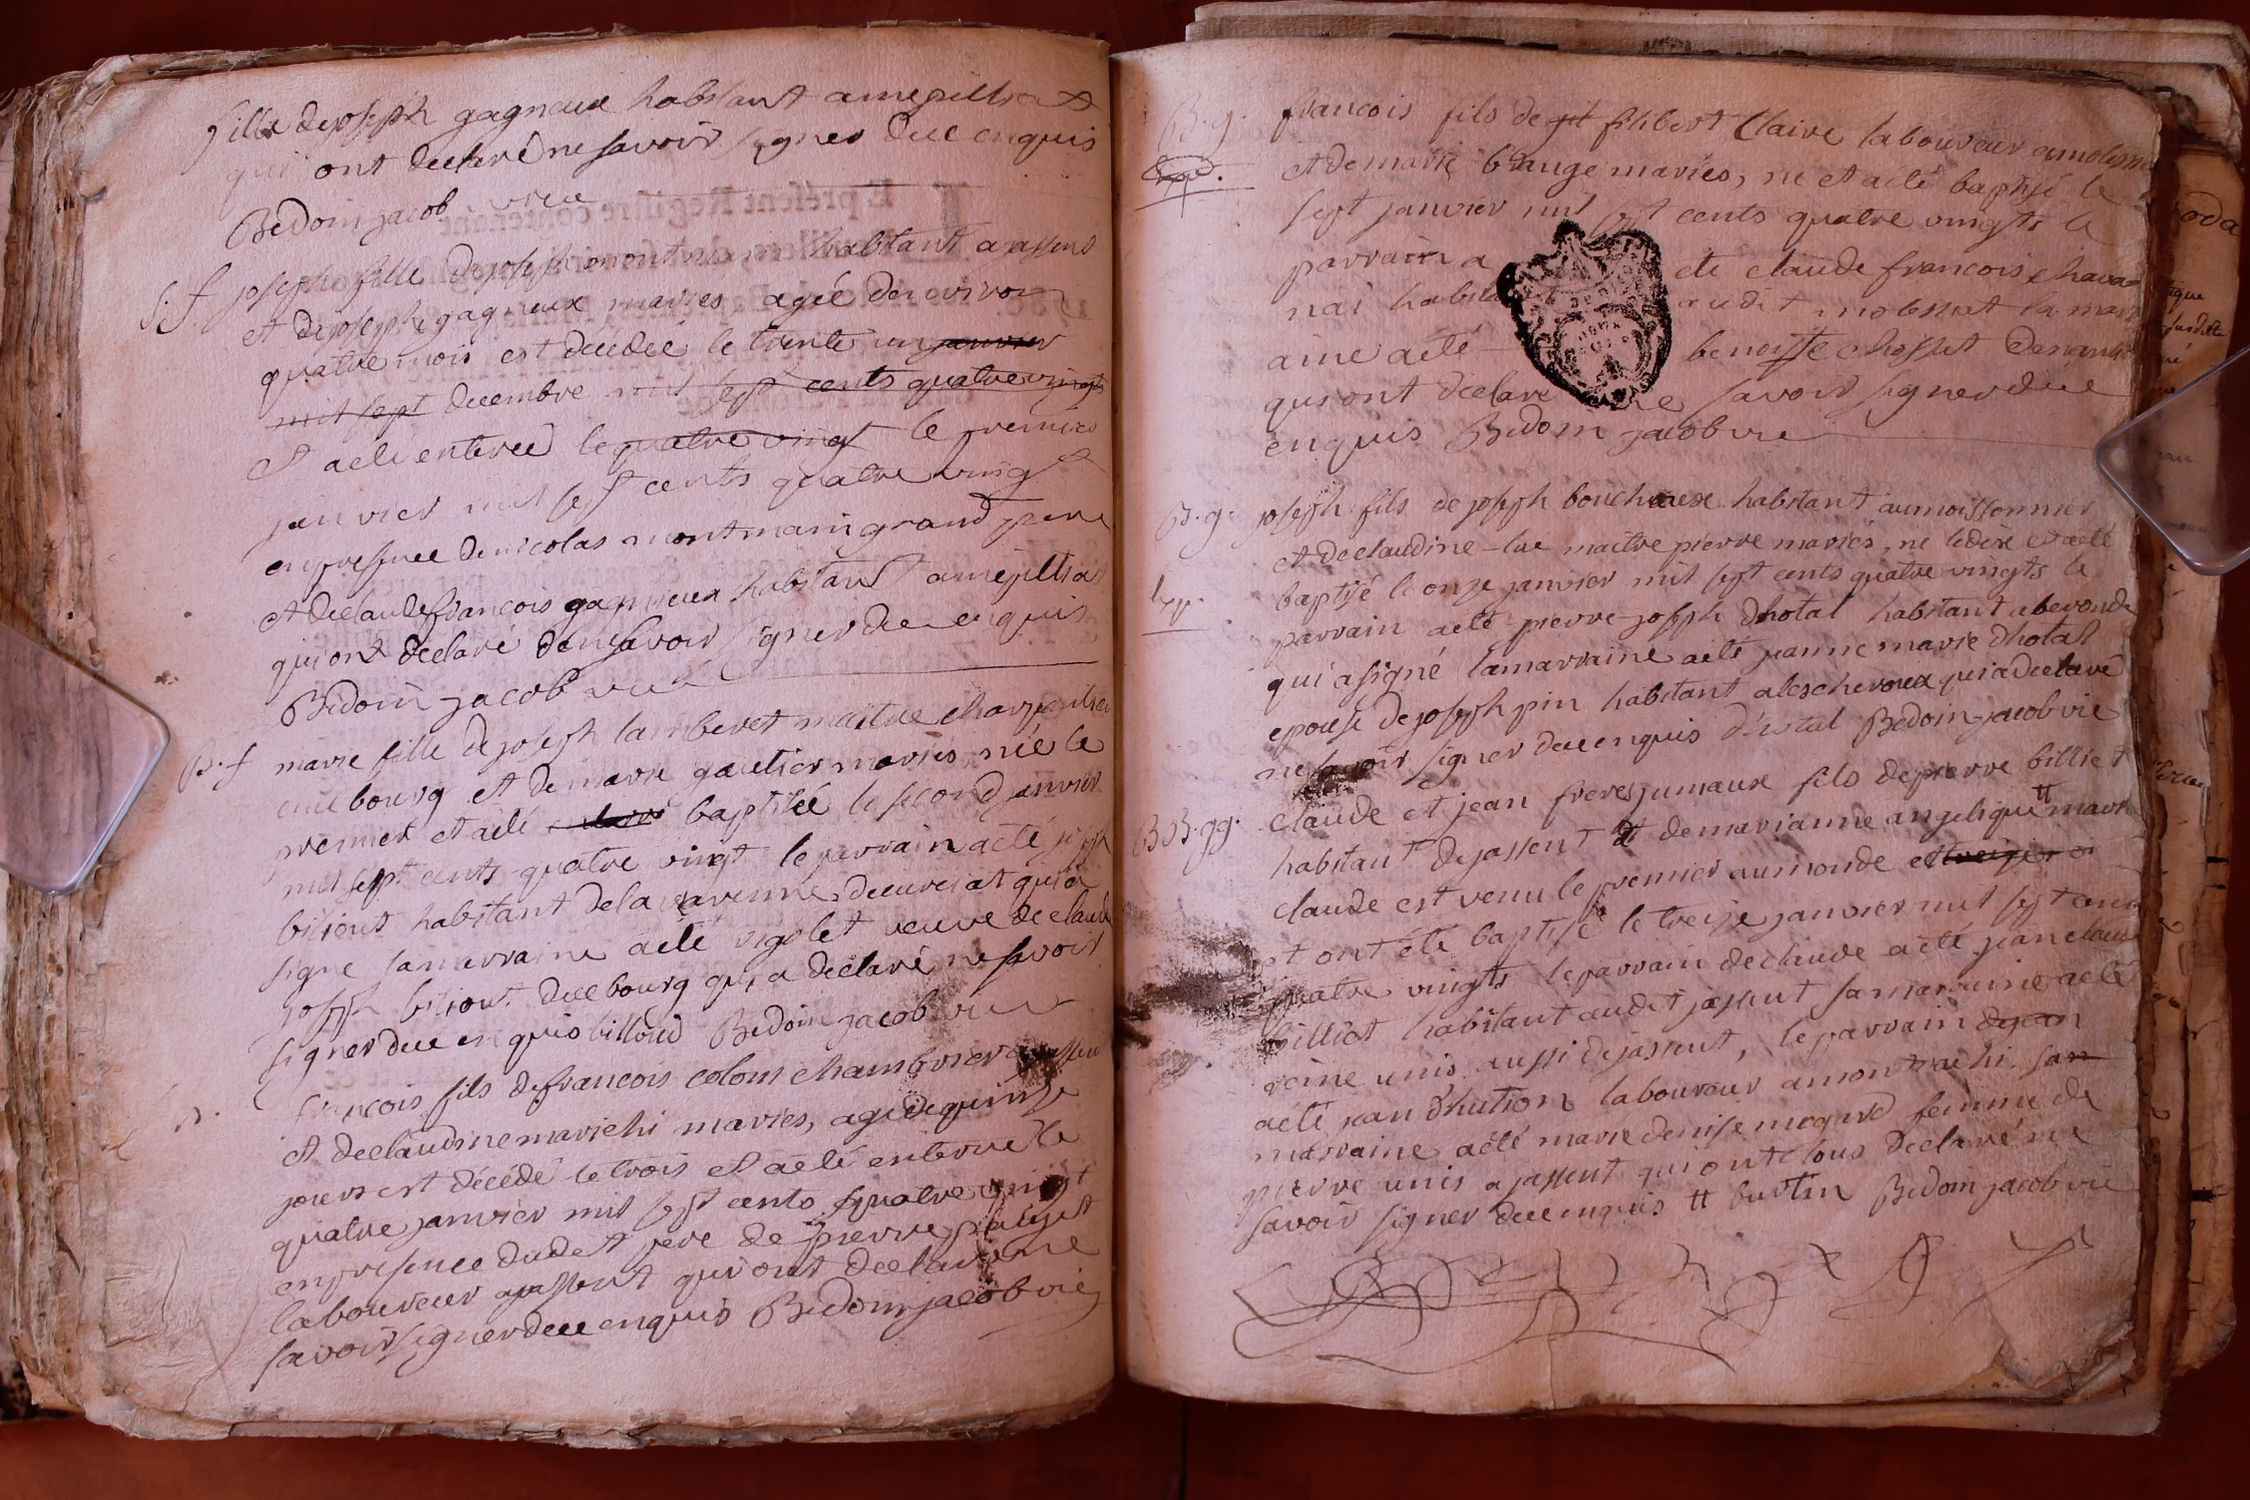 fille de joseph gagneux habitant a mepillia et
qui ont declaré ne savoir signer due enquis
Bedoin jacob vic
S. f. joseph fille de joseph habitant a
et de josephe gagneux maries agée denviron
quatre mois est décédée le trente un janvier
mil sept decembre mil sept cents quatre vingts
et a eté enterree le quatre vingt le premier
janvier mil sept cents quatre vingt
en presence de nicolas montmain grand pere
et de claude francois gagneux habitant a mepillia
qui ont declaré de ne savoir signer due enquis
Bedoin jacob vic
B. f marie fille de joseph lamberet maitre charpentier
au bourg et de marie gautier maries, née le
premier et a eté baptisée le second janvier
mil sept cents quatre vingt le parrain a eté joseph
habitant de la qui a
signé la marraine a eté vigolet veuve de claude
joseph du bourg qui a declaré ne savoir
signer due enquis billoud Bedoin jacob vic
S. francois fils de francois colom chambrier a
et de claudine marichi maries, agé de quinze
jours est décédé le trois et a eté enterré le
quatre janvier mil sept cents quatre vingt
en presence dudit pere de pierre
laboureur a jassent qui ont declaré ne
savoir signer due enquis Bedoin jacob vic
B. g. francois fils de filibert Claire laboureur a
et de marie brange maries, ne et a eté baptisé le
sept janvier mil sept cents quatre vingts le
parrain a eté claude francois chava-
nai habitant audit la marr
aine a eté benoiste chosset
qui ont declaré ne savoir signer due
enquis Bedoin jacob vic
B. g. joseph fils de joseph boucheaux habitant au moissonnier
et de claudine-luc maitre pierre mariés, ne le dix et a eté
baptisé le onze janvier mil sept cents quatre vingts le
parrain a eté pierre-joseph dhotal habitant a beronde
qui a signé la marraine a eté jeanne marie dhotal
epouse de joseph pin habitant a les chevreux qui a declaré
ne savoir signer due enquis dhotal Bedoin jacob vic
B B. gg. claude et jean freres jumaux fils de pierre billiet
habitant de jassent et de marianne angelique # mariés
claude est venu le premier au monde
et ont été baptisé le treize janvier mil sept cents
quatre vingts le parrain de claude a eté jean claude
billiet habitant audit jassent sa marraine a eté
reine unis aussi de jassent, le parrain de jean
a eté jean dhution laboureur a montrachi sa
marraine a eté marie denise mognard femme de
pierre unis a jassent qui ont tous declaré ne
savoir signer due enquis # burtin Bedoin jacob vic